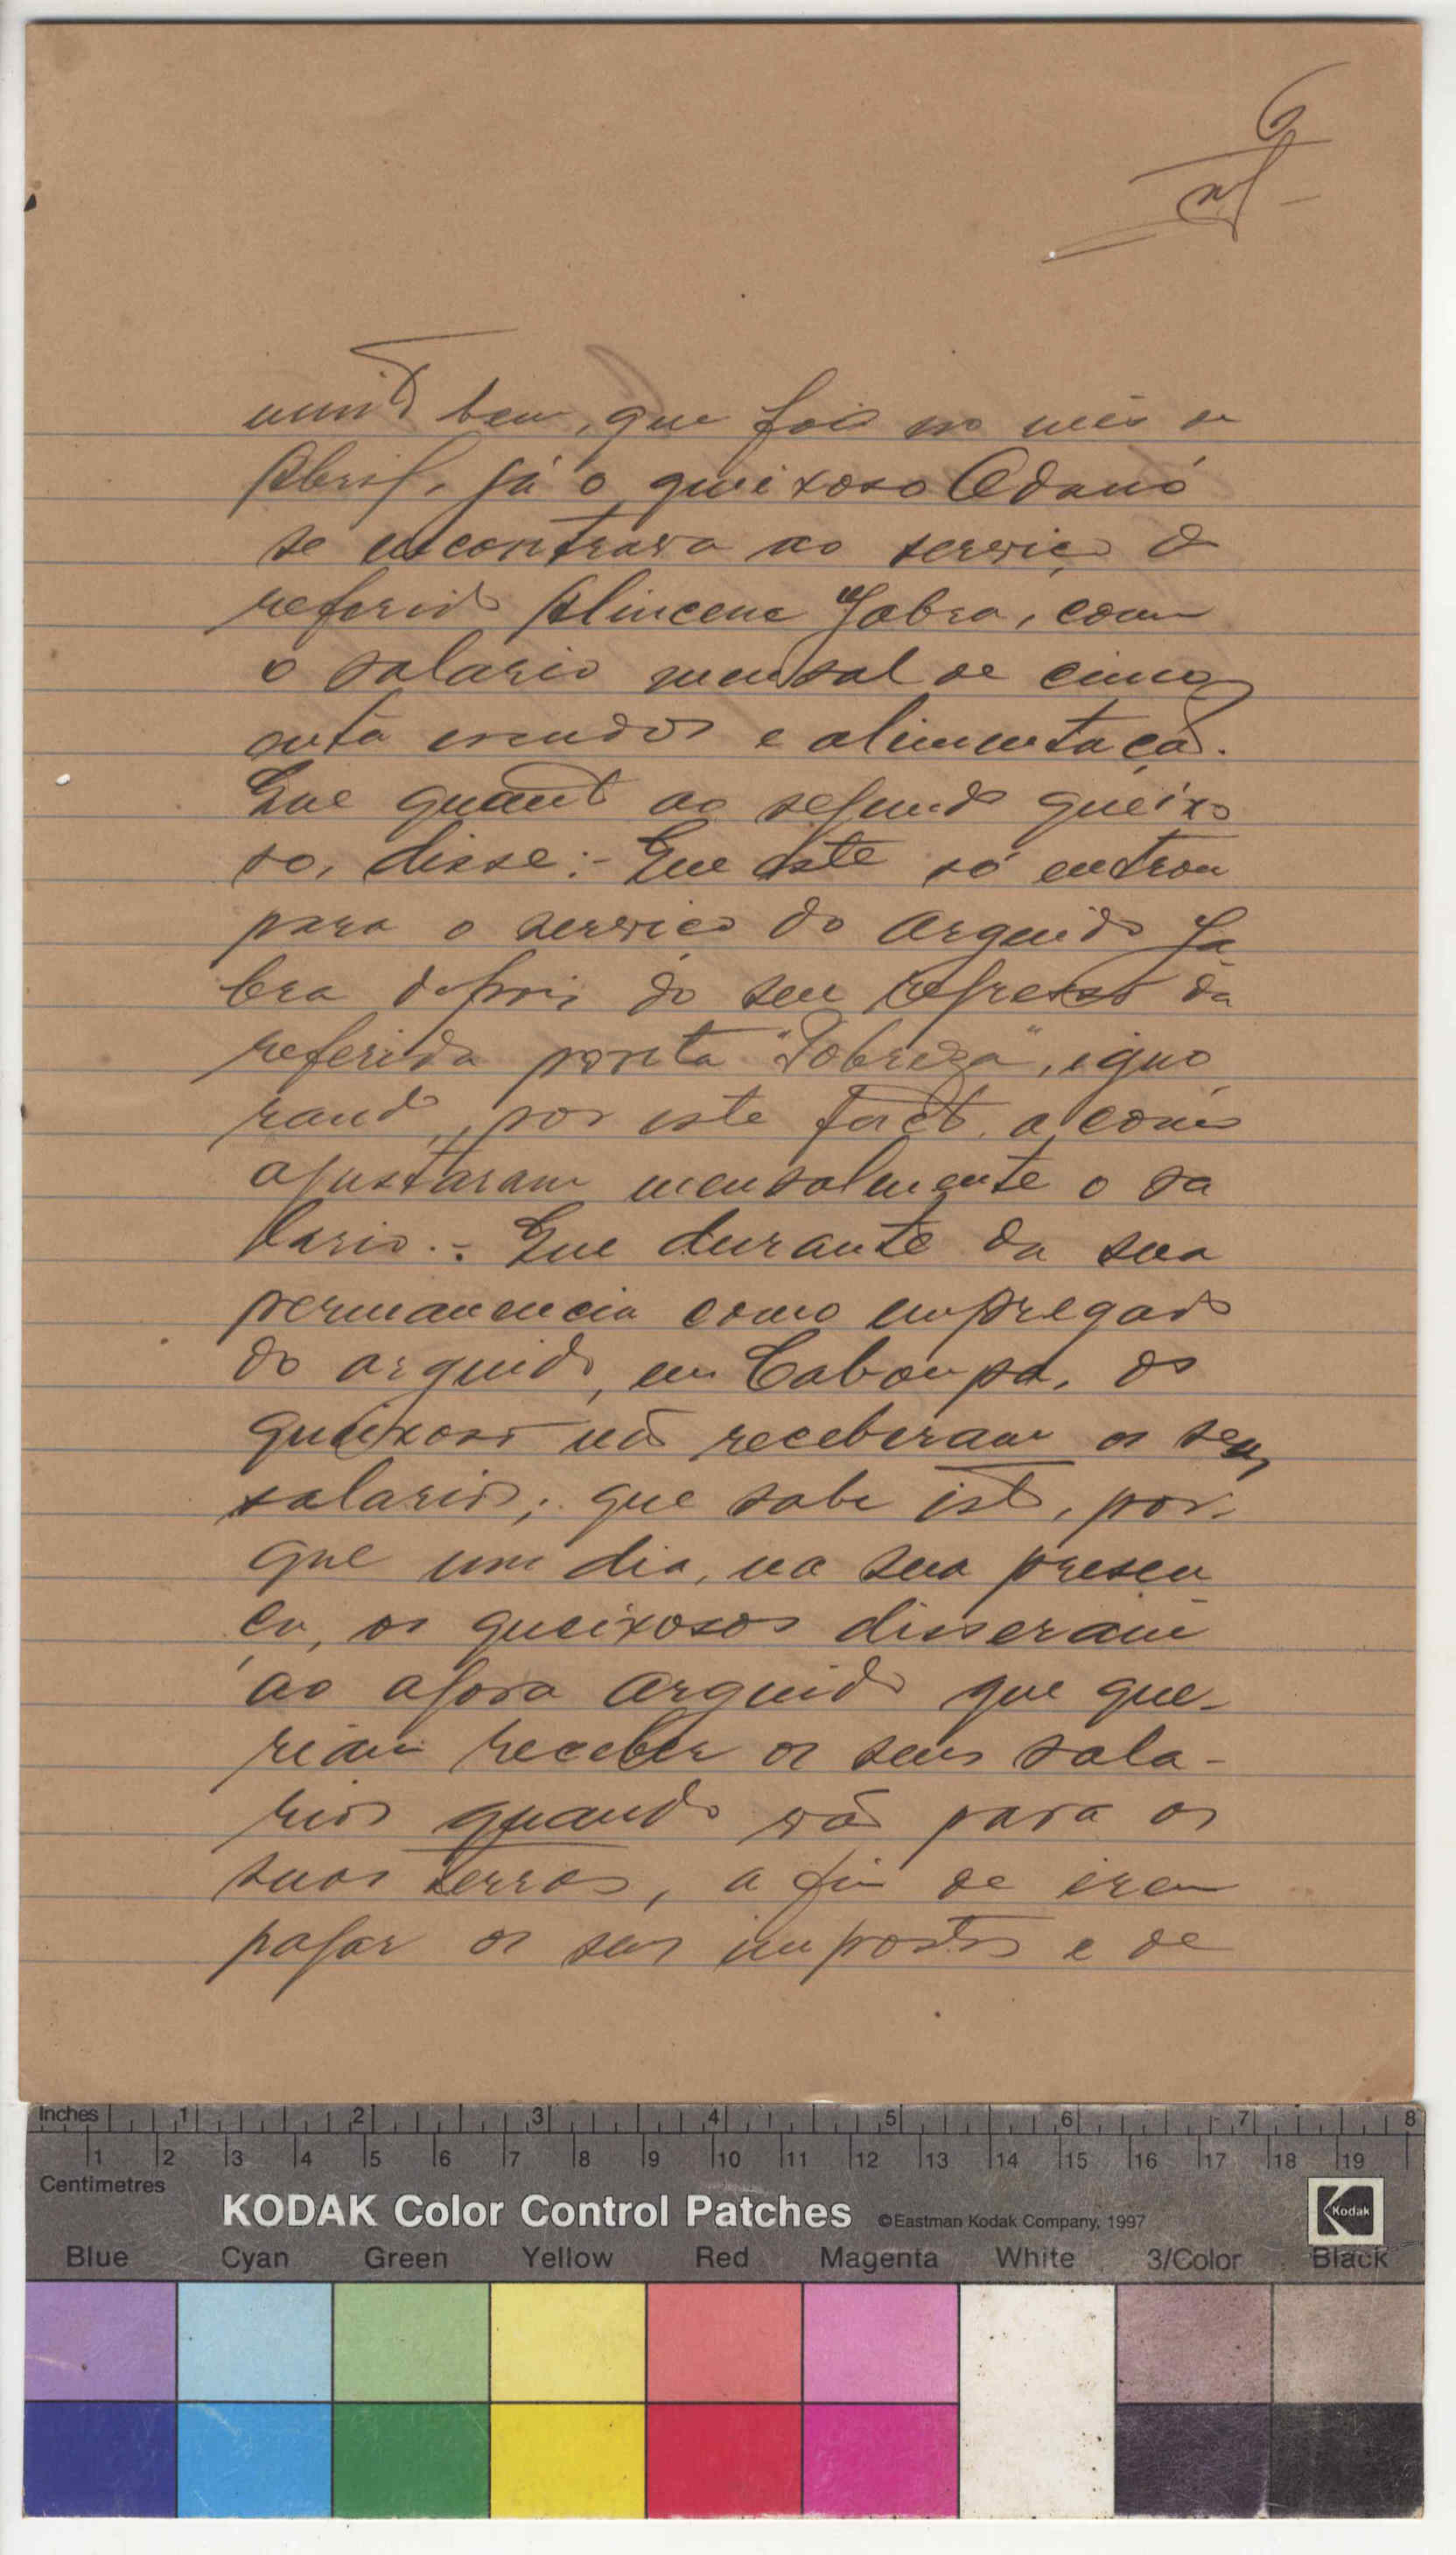 6
muito bem, que foi no mês de
Abril, já o queixoso Adanó
se encontrava ao serviço do
referido Alincene Jabra, com
o salario mensal de cinco
enta escudos e alimentação.
Que quanto ao segundo queixo
so, disse:- Que este só entrou
para o serviço do arguido Ja
bra depois do seu regresso da
referida ponta "Pobreza", igno
rando, por este facto, a como
ajustaram mensalmente o sa
lario.- Que durante da sua
permanencia como empregado
do arguido, em Caboupa, os
queixosos não receberam os seus
salarios; que sabe isto, por-
que um dia, na sua presen
ça, os queixosos disseram
ao agora arguido que que-
riam receber os seus sala-
rios quando vão para as
suas terras, a fim de irem
pagar os seus impostos e de
Inches 1 2 3 4 5 6 7 8
1 2 3 4 5 6 7 8 9 10 11 12 13 14 15 16 17 18 19
Centimetres
KODAK Color Control Patches ©Eastman Kodak Company, 1997 Kodak
Blue Cyan Green Yellow Red Magenta White 3/Color Black